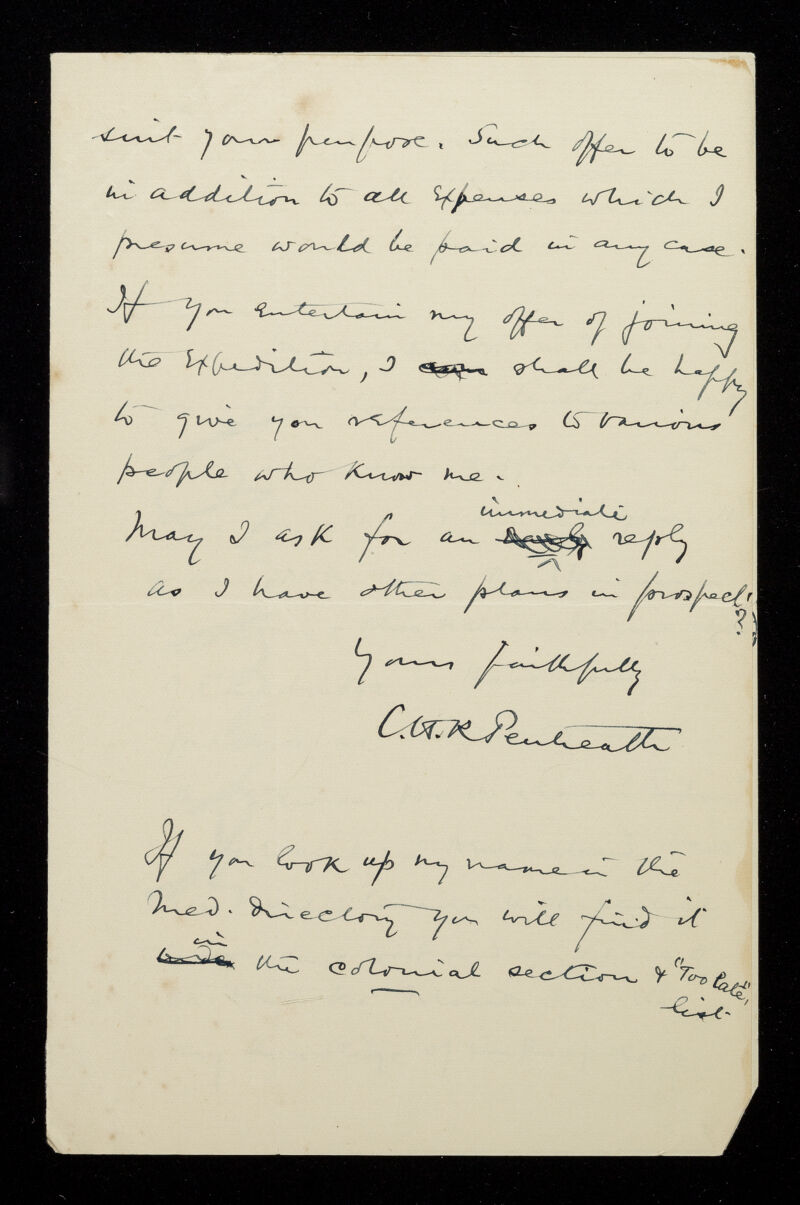 suit your purpose. Such offer to be
in addition to all expenses which I
presume would be paid in any case.
If you entertain my offer of joining
the Expedition, I shall be happy
to give you references to various
people who know me.
May I ask for an immediate reply
as I have other plans in prospect.
Yours faithfully
C.H.R Penheath
If you look up my name in the
Med. directory you will find it
in the colonial section & "Too Late"
list